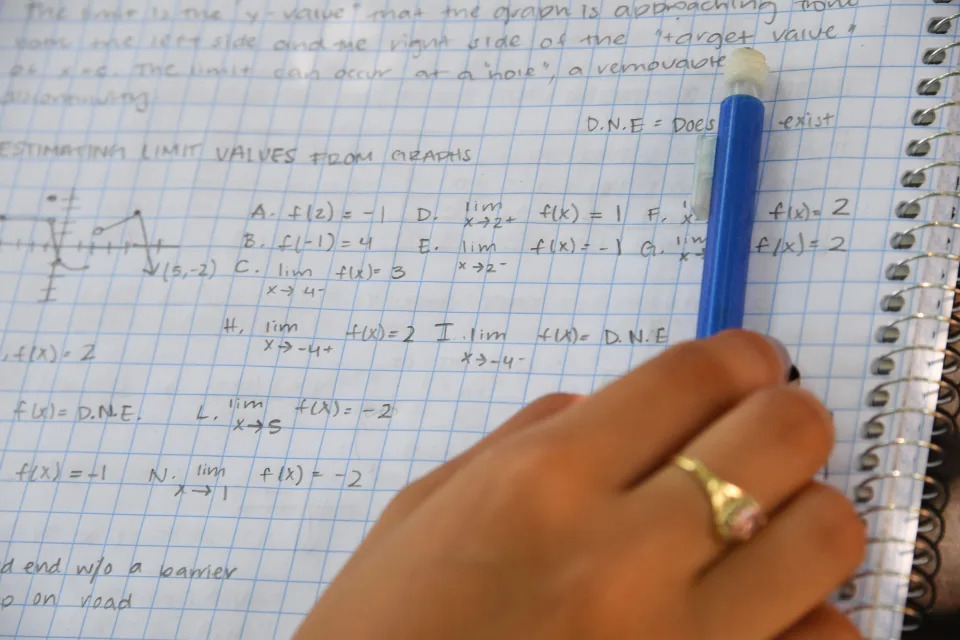 The limit is the "y-value" that the graph is approaching from
the left side and the right side of the "target value"
of x=c. The limit can occur at a "hole", a removable
discontinuity.
D.N.E = Does exist
ESTIMATING LIMIT VALUES FROM GRAPHS
A. f(2) = -1 D. lim x→2+ f(x) = 1 F. x f(x)= 2
B. f(-1) = 4 E. lim x→2- f(x) = -1 G. lim x→ f(x)= 2
(5,-2) C. lim x→4- f(x)= 3
H. lim x→-4+ f(x)=2 I. lim x→-4- f(x)= D.N.E
f(x)=2
f(x)= D.N.E. L. lim x→5 f(x)= -2
f(x) = -1 N. lim x→1 f(x) = -2
d end w/o a barrier
p on road